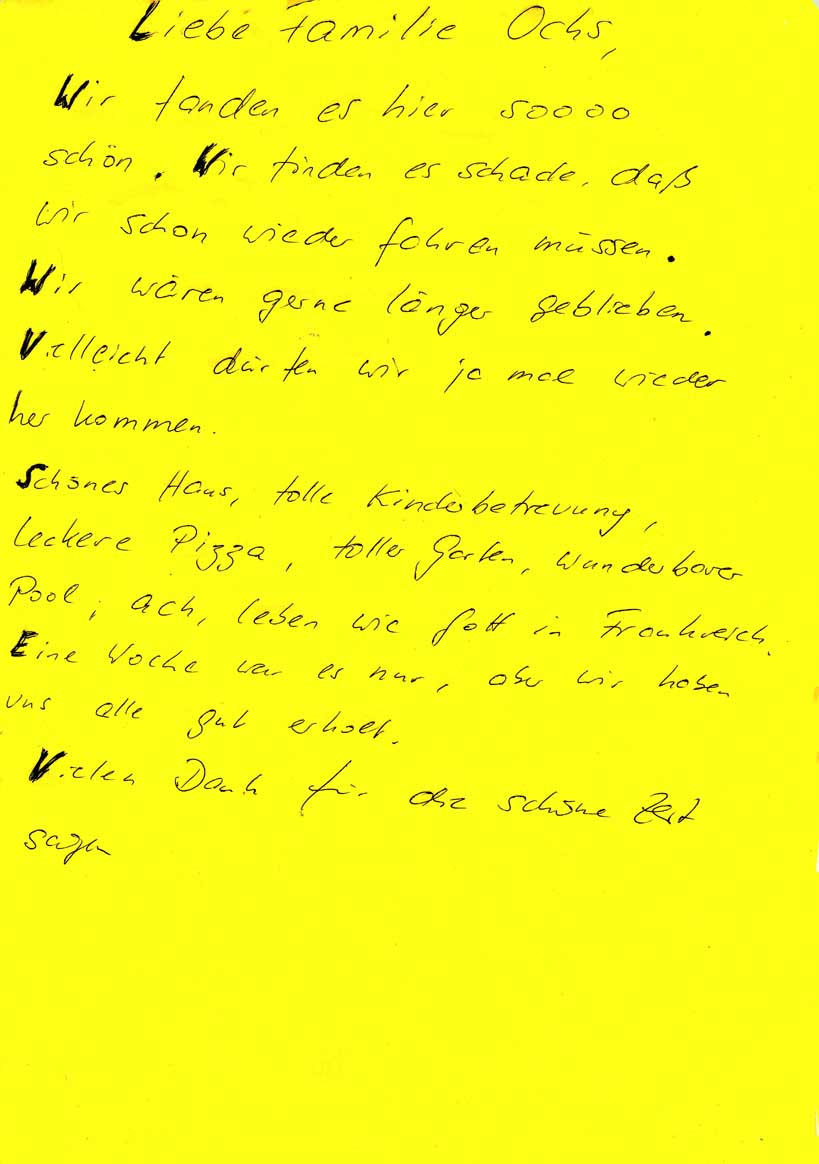 Liebe Familie Ochs,
Wir fanden es hier soooo
schön. Wir finden es schade, daß
wir schon wieder fahren müssen.
Wir wären gerne länger geblieben.
Vielleicht dürfen wir ja mal wieder
her kommen.
Schönes Haus, tolle Kinderbetreuung,
leckere Pizza, toller Garten, wunderbarer
Pool, ach, leben wie Gott in Frankreich.
Eine Woche war es nur, aber wir haben
uns alle gut erholt.
Vielen Dank für die schöne Zeit
sagen